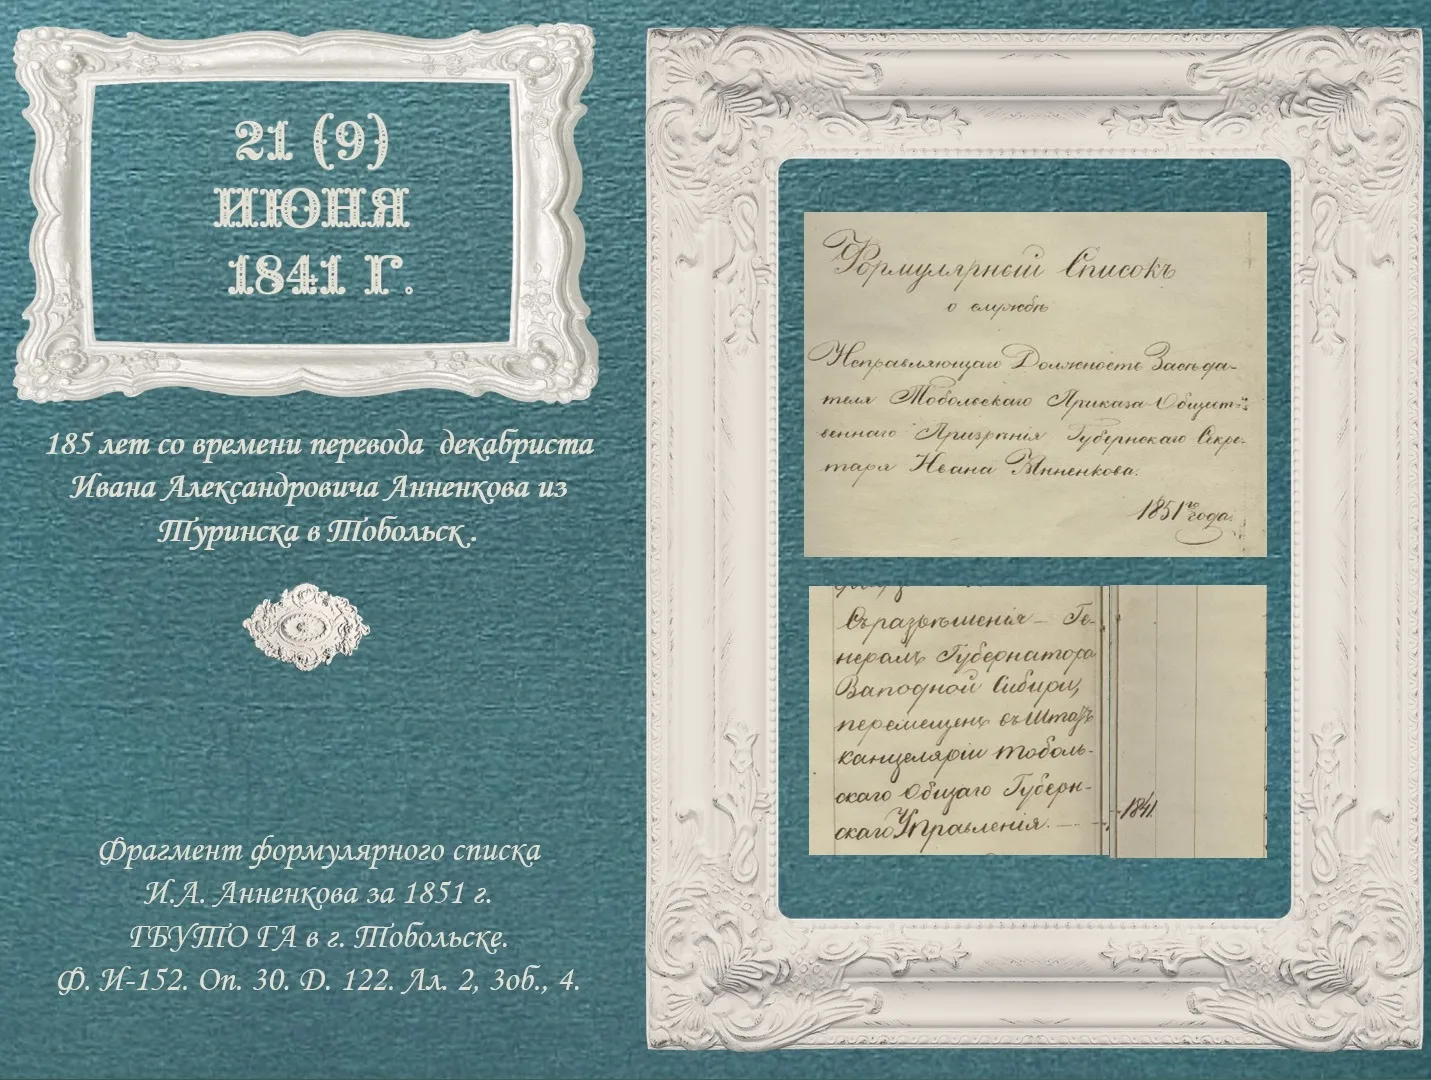 21 (9)
ИЮНЯ
1841 Г.
185 лет со времени перевода декабриста
Ивана Александровича Анненкова из
Туринска в Тобольск .
Фрагмент формулярного списка
И.А. Анненкова за 1851 г.
ГБУТО ГА в г. Тобольске.
Ф. И-152. Оп. 30. Д. 122. Лл. 2, 3об., 4.
Формулярный Списокъ
о службѣ
Исправляющаго Должность Засѣда-
теля Тобольскаго Приказа Общест-
веннаго Призрѣнія Губернскаго Секре-
таря Ивана Анненкова.
1851го года.
Съ разрѣшенія Ге-
нералъ Губернатора
Западной Сибири,
перемещенъ въ Штатъ
канцеляріи Тоболь-
скаго Общаго Губерн-
скаго Управленія. —
1841